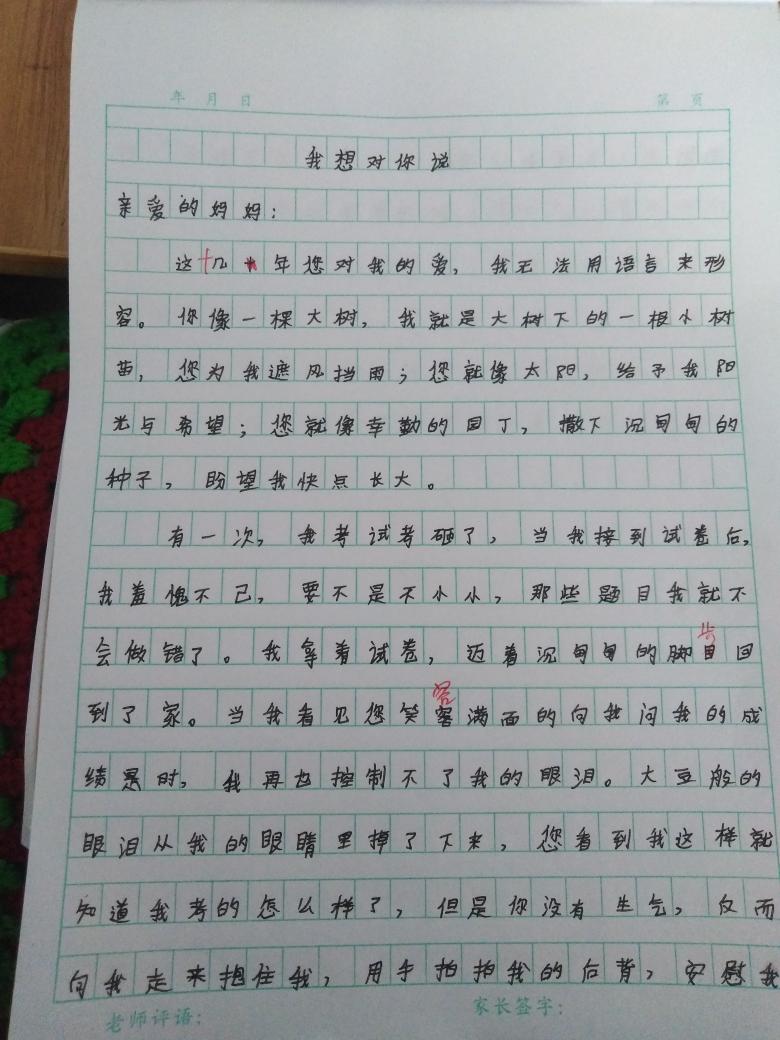 年 月 日 第 页
我想对你说
亲爱的妈妈:
这十几年您对我的爱,我无法用语言来形
容。你像一棵大树,我就是大树下的一根小树
苗,您为我遮风挡雨;您就像太阳,给予我阳
光与希望;您就像幸勤的园丁,撒下沉甸甸的
种子,盼望我快点长大。
有一次,我考试考砸了,当我接到试卷后,
我羞愧不已,要不是不小小,那些题目我就不
会做错了。我拿着试卷,迈着沉甸甸的脚步回
到了家。当我看见您笑容满面的向我问我的成
绩是时,我再也控制不了我的眼泪。大豆般的
眼泪从我的眼睛里掉了下来,您看到我这样就
知道我考的怎么样了,但是你没有生气,反而
向我走来抱住我,用手拍拍我的后背,安慰我
老师评语: 家长签字: